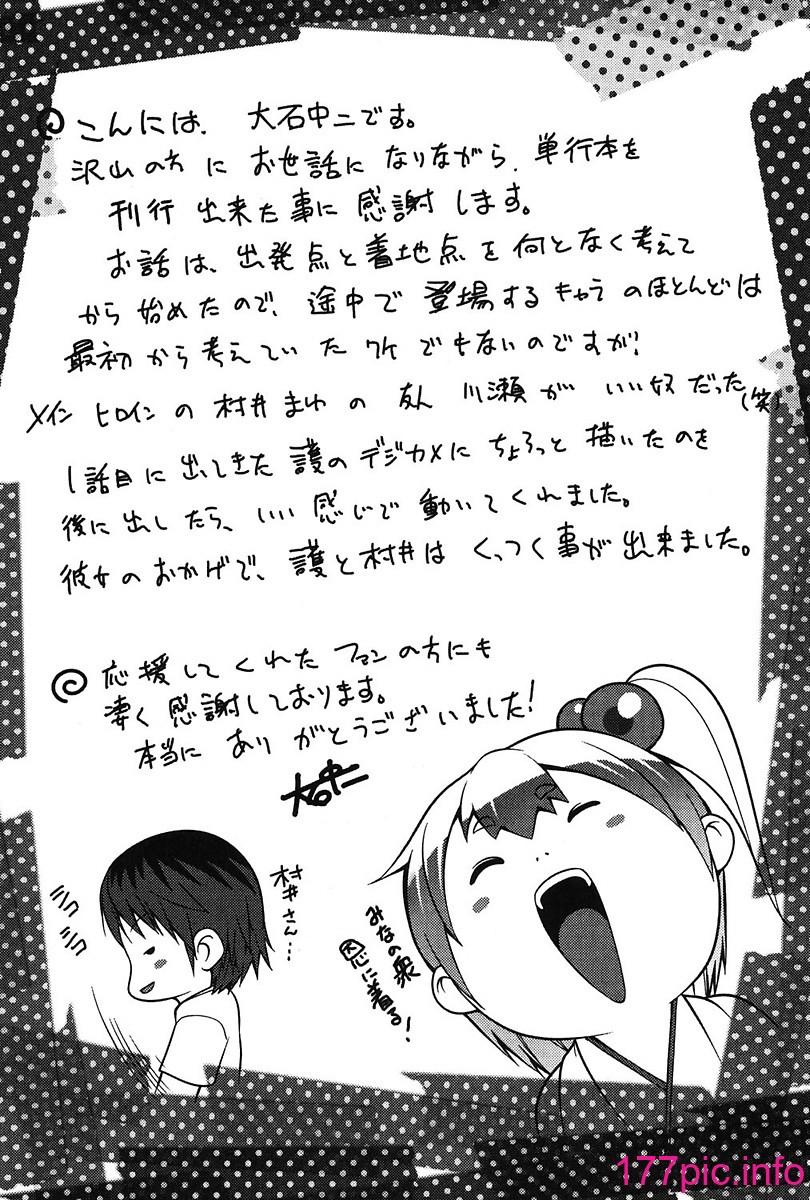 こんにちは、大石中二です。
沢山の方にお世話になりながら、単行本を
刊行出来た事に感謝します。
お話は、出発点と着地点を何となく考えて
から始めたので、途中で登場するキャラのほとんどは
最初から考えていたワケでもないのですが、
メインヒロインの村井まゆの友人川瀬がいい奴だった(笑)
1話目に出てきた護のデジカメにちょろっと描いたのを
後に出したら、いい感じで動いてくれました。
彼女のおかげで、護と村井はくっつく事が出来ました。
応援してくれたファンの方にも
凄く感謝しております。
本当にありがとうございました!
大石中二
村井さん…
ミミミ
ミミミ
みなの衆
恩に着る!
177pic.info